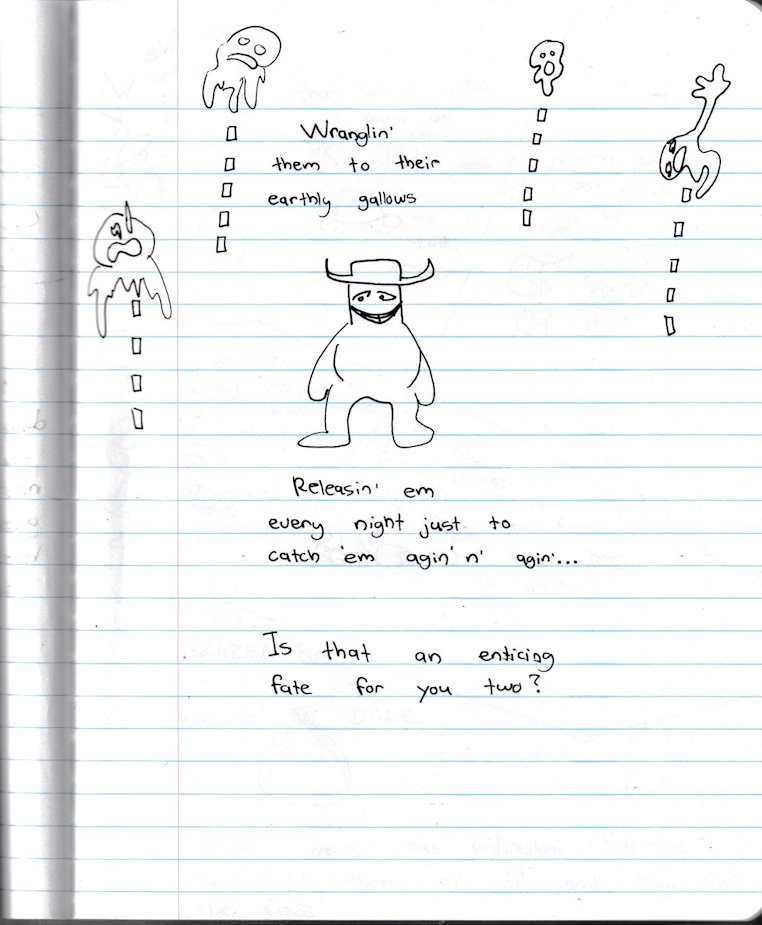 Wranglin'
them to their
earthly gallows
Releasin' em
every night just to
catch 'em agin' n' agin'...
Is that an enticing
fate for you two?